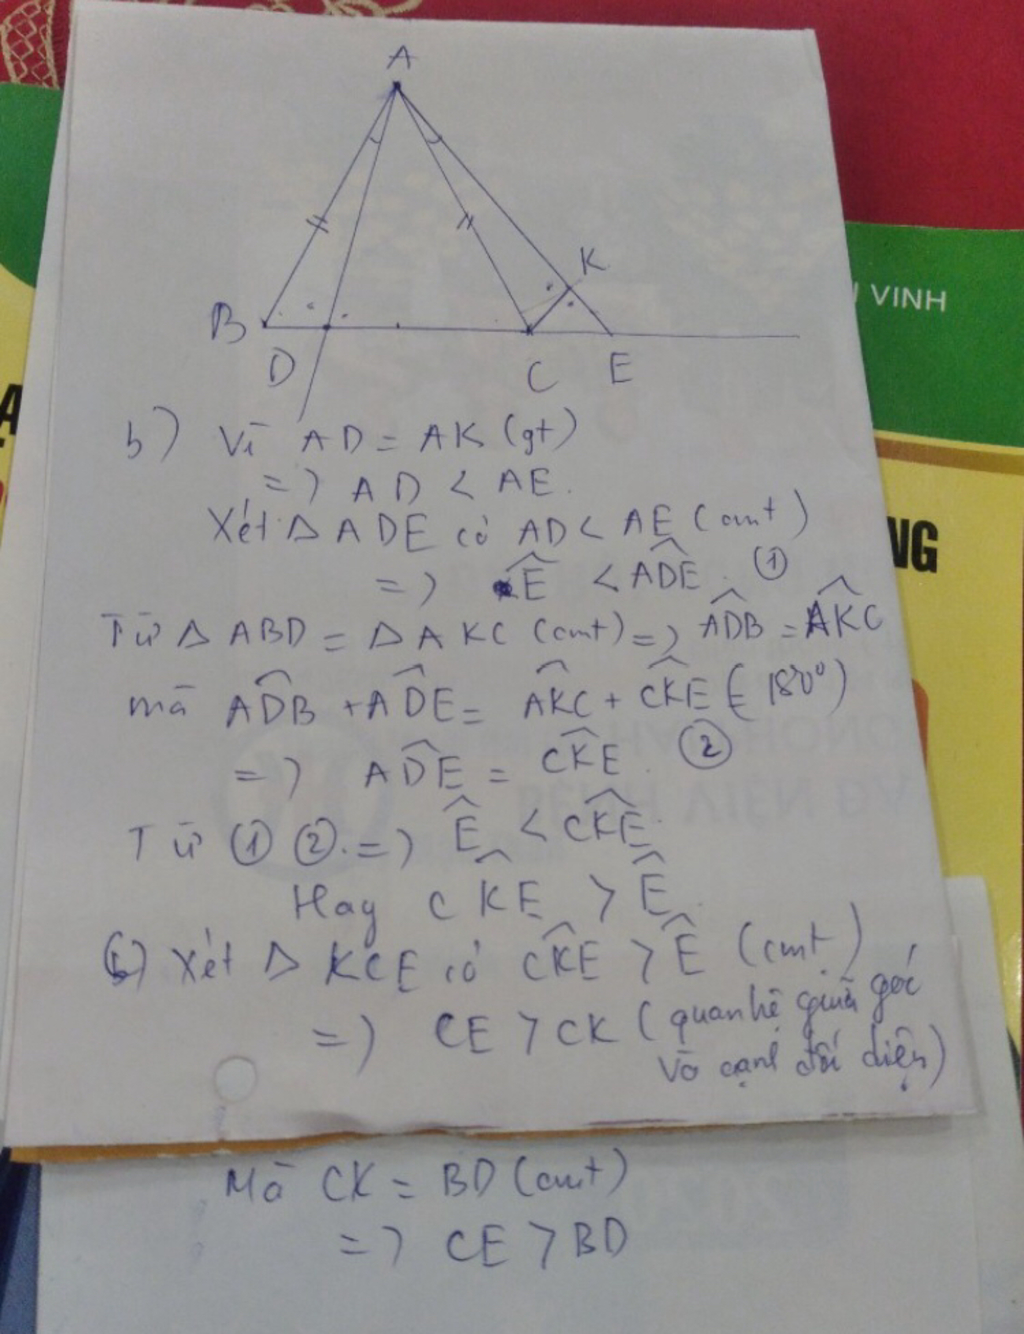 A
K
B
D
C
E
VINH
NG
b) Vì AD = AK (gt)
=> AD < AE.
Xét Δ ADE có AD < AE (cmt)
=> Ê < ADÊ. ①
Từ Δ ABD = Δ AKC (cmt) => ADB̂ = AKĈ
mà AD̂B + AD̂E = AK̂C + CK̂E (= 180°)
=> AD̂E = CK̂E. ②
Từ ① ②. => Ê < CK̂E.
Hay CK̂E > Ê.
c) Xét Δ KCE có CK̂E > Ê (cmt)
=> CE > CK (quan hệ giữa góc
và cạnh đối diện)
Mà CK = BD (cmt)
=> CE > BD